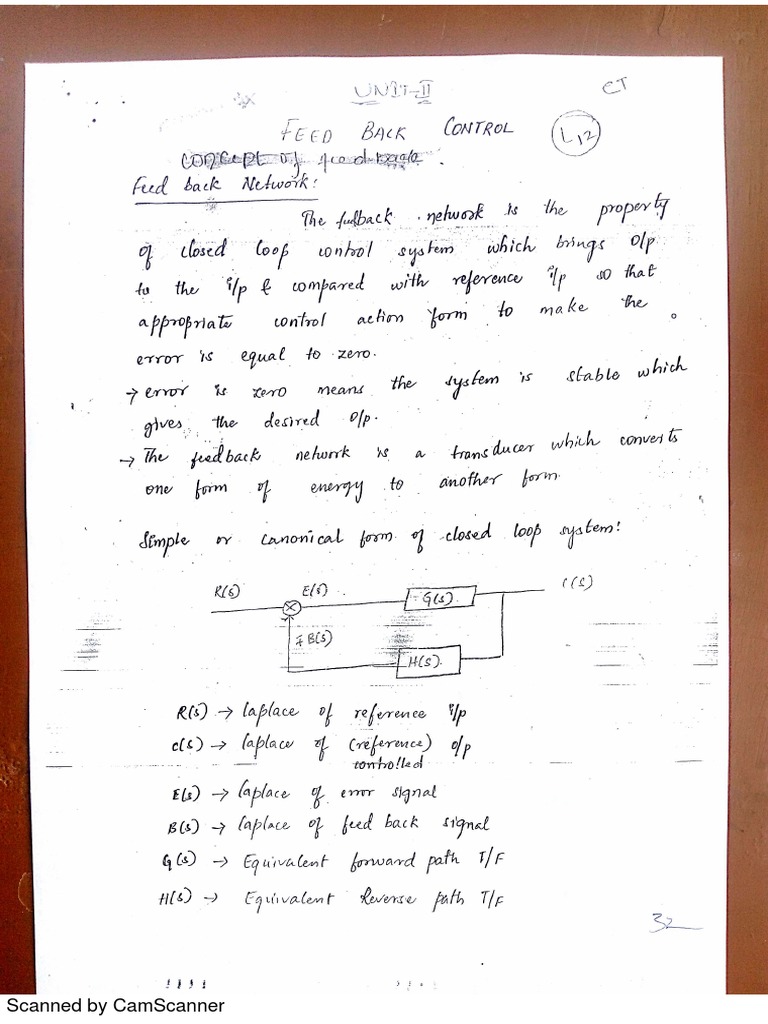 UNIT-II
CT
FEED BACK CONTROL
L12
concept of feedback.
Feed back Network:
The feedback network is the property
of closed loop control system which brings o/p
to the i/p & compared with reference i/p so that
appropriate control action form to make the
error is equal to zero.
→ error is zero means the system is stable which
gives the desired o/p.
→ The feedback network is a transducer which converts
one form of energy to another form.
Simple or canonical form of closed loop system:
R(s) E(s) G(s) C(s)
∓ B(s)
H(s)
R(s) → laplace of reference i/p
C(s) → laplace of (reference) o/p
controlled
E(s) → laplace of error signal
B(s) → laplace of feed back signal
G(s) → Equivalent forward path T/F
H(s) → Equivalent Reverse path T/F
32
Scanned by CamScanner